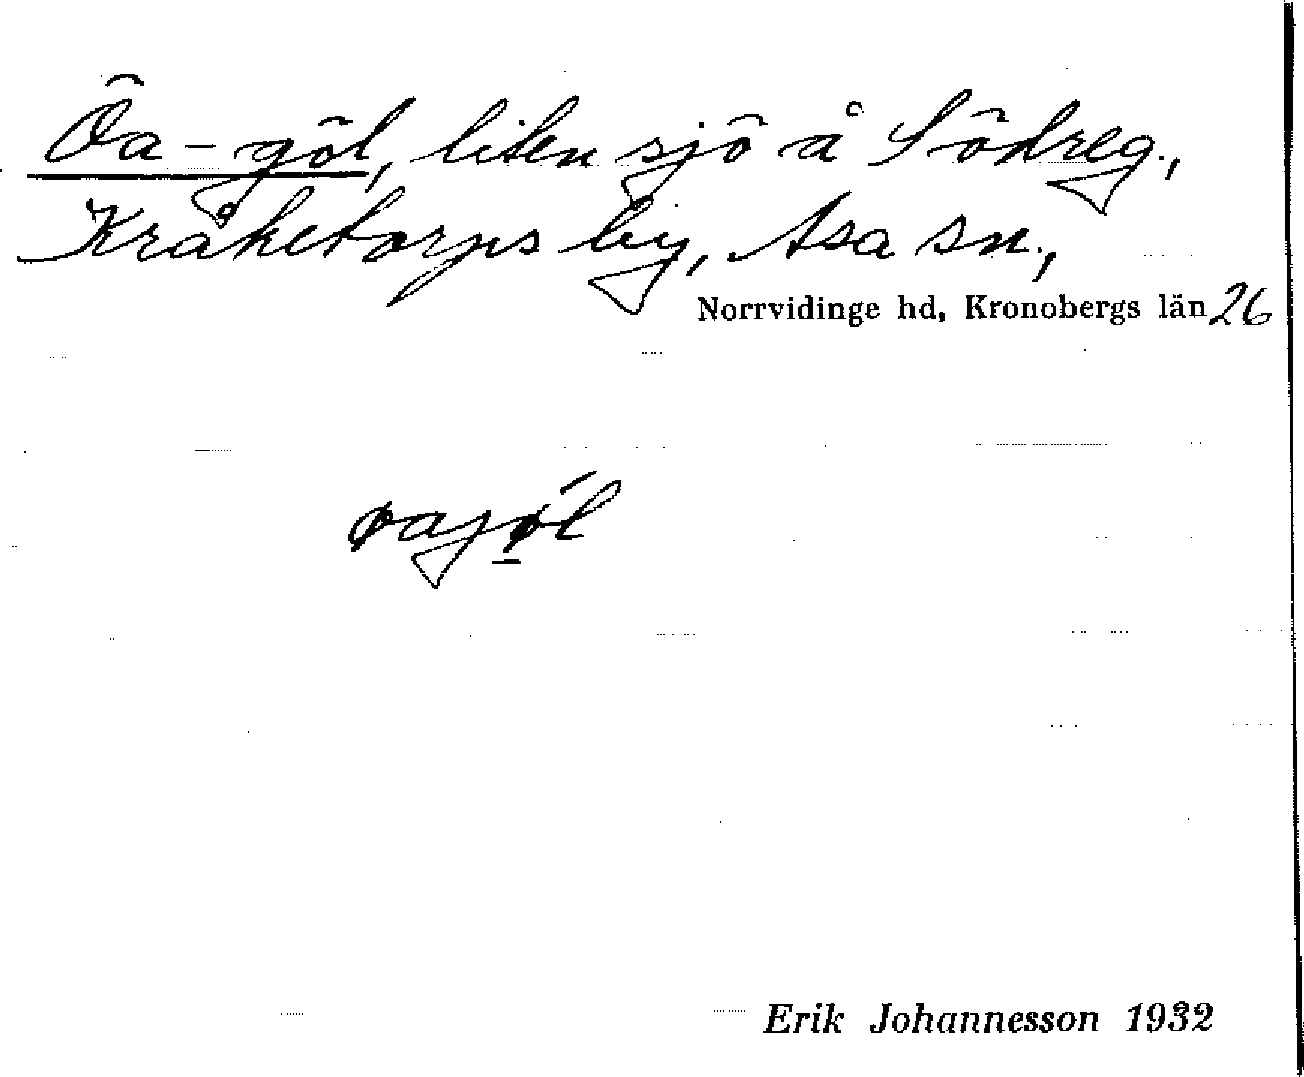 Öa-göl, liten sjö å Södreg.,
Kråketorps by, Asa sn.,
Norrvidinge hd, Kronobergs län 26
øajǿ̠l
Erik Johannesson 1932